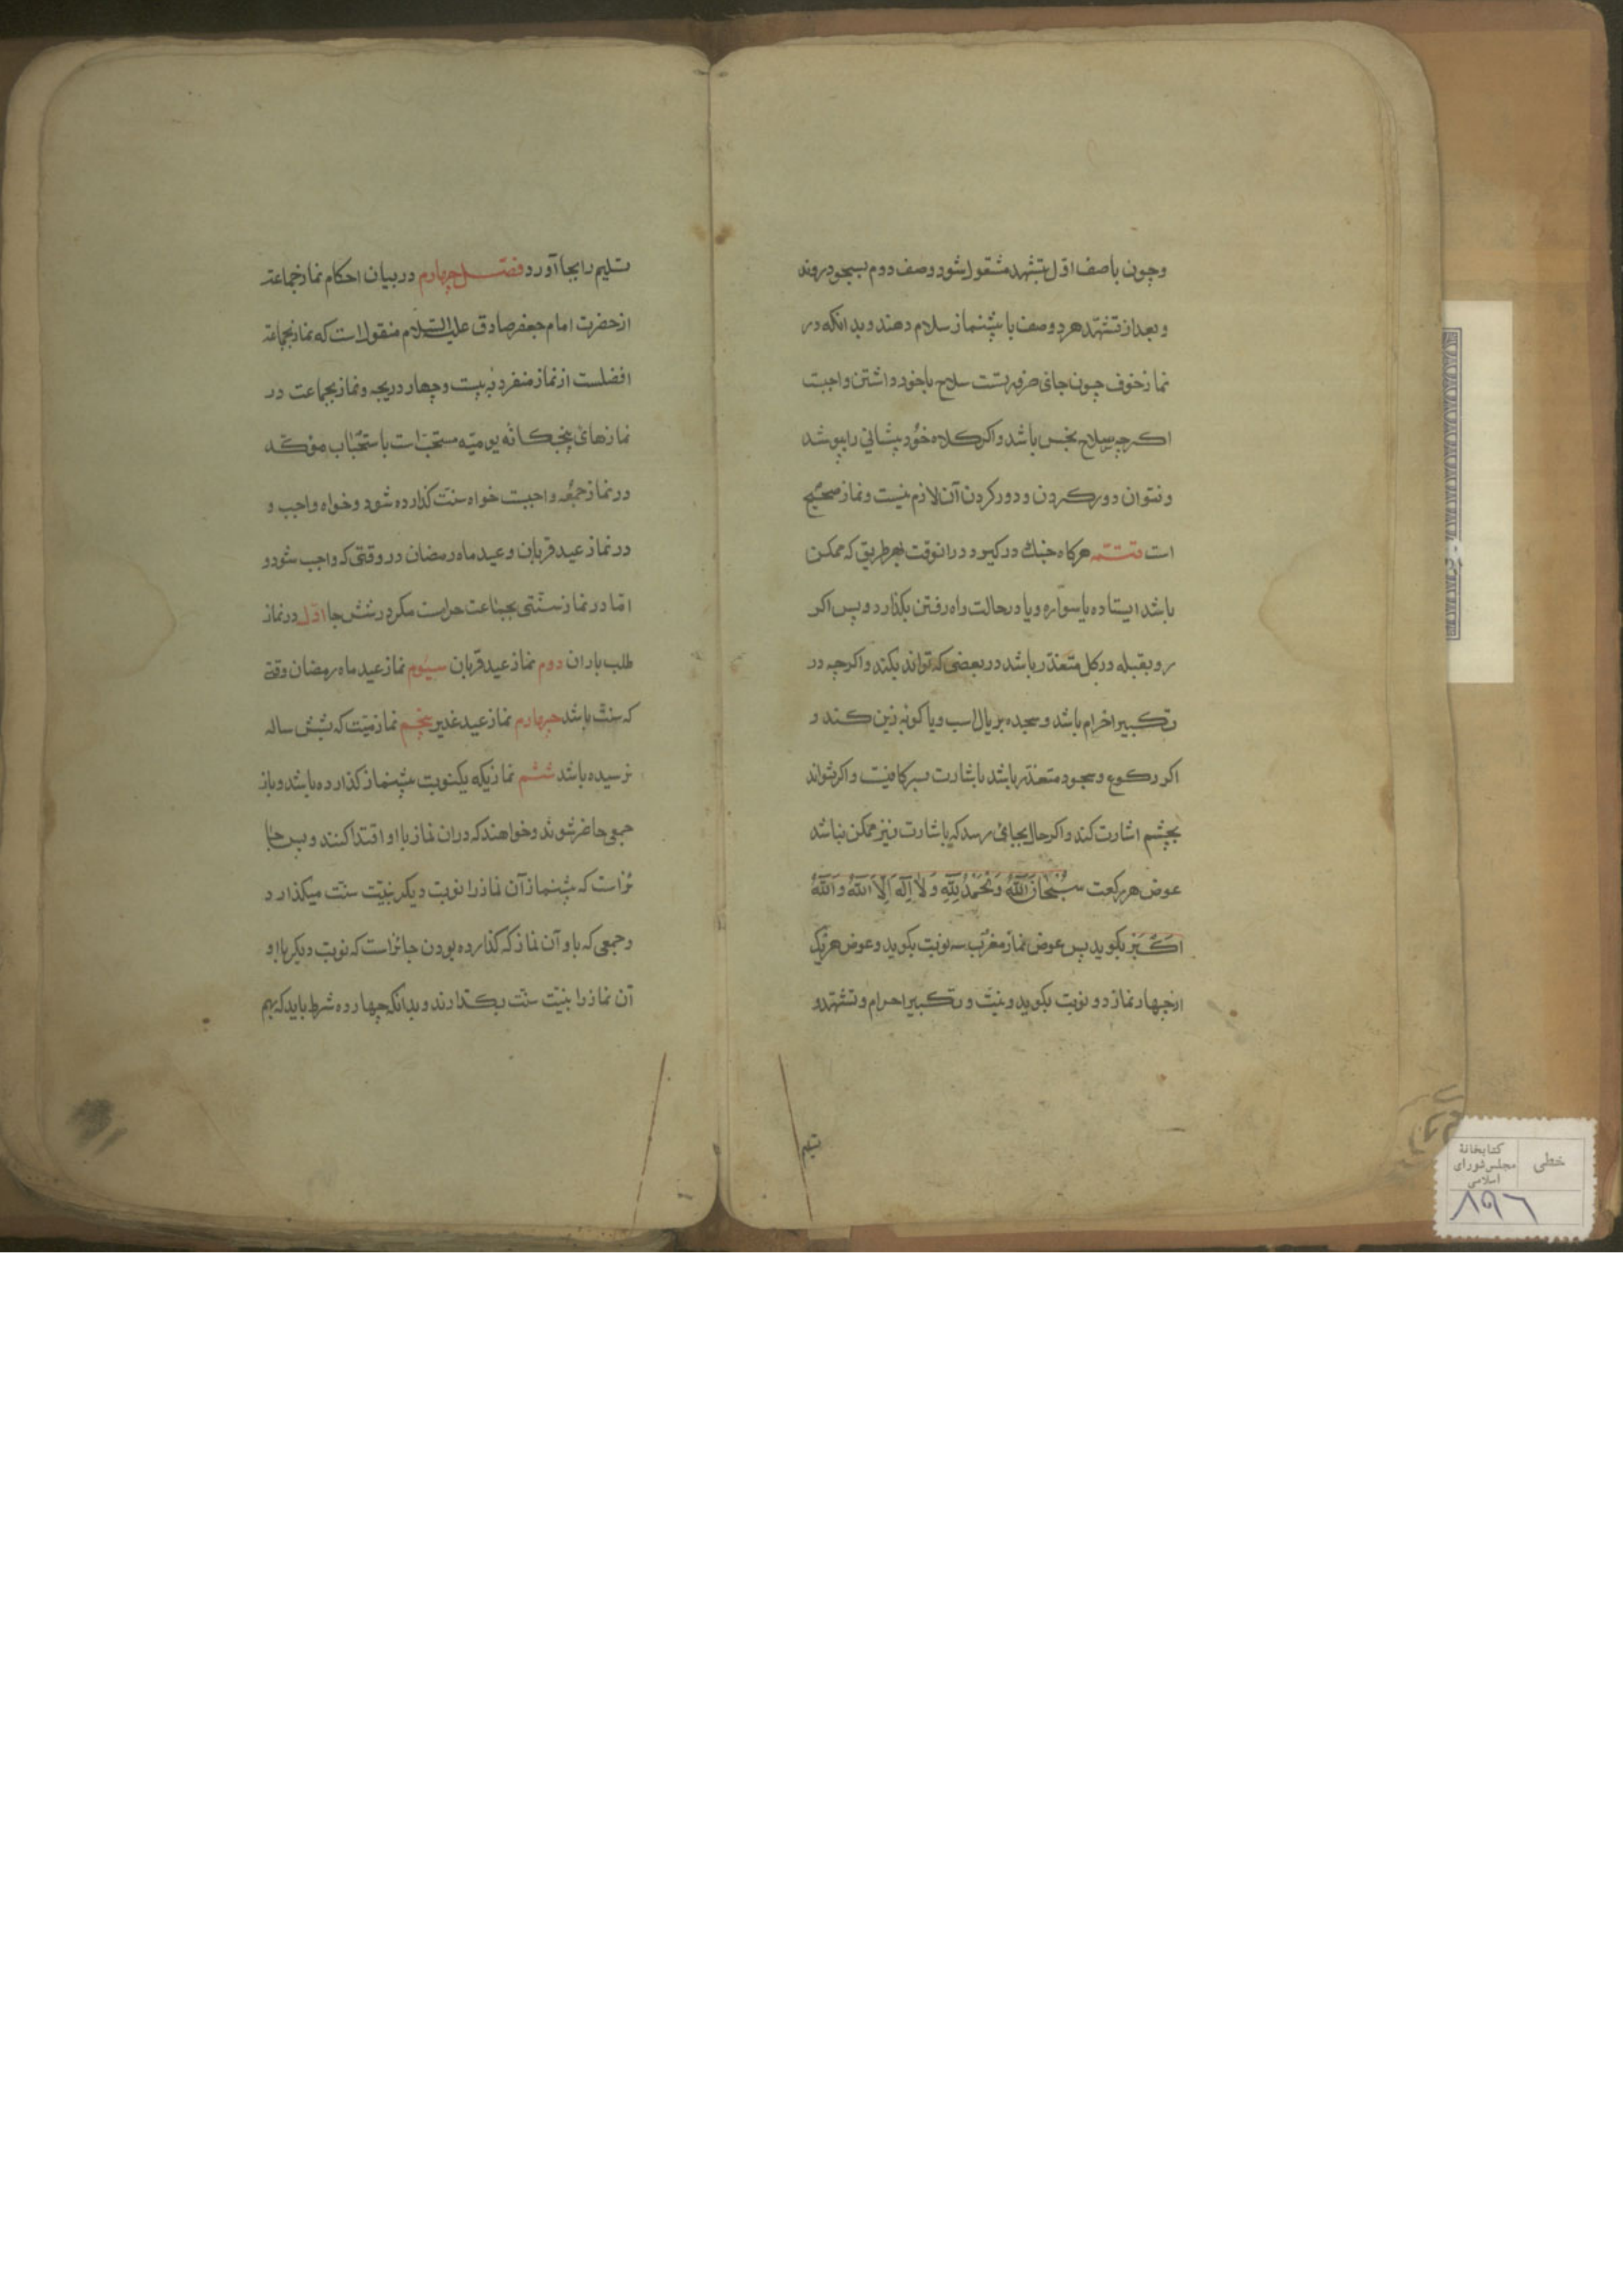 وچون باصف اول بتشهد مشغول شود وصف دوم بسجود روند
وبعد از تشهد هر دو صف با پیشنماز سلام دهند وبدانکه در
نماز خوف چون جای سلاح باخود داشتن واجبست
اکرچه سلاح نجس باشد واکر کلاه خود پیشانی را بپوشد
ونتوان دور کردن ودور کردن آن لازم نیست ونماز صحیح
است تتمه هرکاه جنک در کیرد درانوقت بهر طریق که ممکن
باشد ایستاده یا سواره ویا در حالت راه رفتن بکذارد وپس اکر
رو بقبله در کل متعذر باشد در بعضی که تواند بکند واکرچه در
تکبیر احرام باشد وسجده بر یال اسب ویا کوهه زین کند و
اکر رکوع وسجود متعذر باشد باشارت سر کافیست واکر نتواند
بچشم اشارت کند واکر حال بجایی رسد که باشارت نیز ممکن نباشد
عوض هر رکعت سُبْحَانَ اللهِ وَالْحَمْدُ لِلّٰهِ وَلَا اِلٰهَ اِلَّا اللهُ وَاللهُ
اَکْبَر بکوید پس عوض نماز مغرب سه نوبت بکوید وعوض هر یک
از چهار نماز دو نوبت بکوید ونیت وتکبیر احرام وتشهد و
تسلیم
تسلیم را بجا آورد فصل چهارم در بیان احکام نماز جماعة
از حضرت امام جعفر صادق علیه السلام منقول است که نماز بجماعة
افضلست از نماز منفرد به بیست وچهار درجه ونماز بجماعت در
نمازهای پنجکانه یومیه مستحبّ است باستحباب مؤکد
در نماز جمعه واجبست خواه سنت کذارده شود وخواه واجب و
در نماز عید قربان وعید ماه رمضان در وقتی که واجب شود و
امّا در نماز سنّتی بجماعت حرامست مکر در شش جا اوّل در نماز
طلب باران دوم نماز عید قربان سیوم نماز عید ماه رمضان وقتی
که سنت باشد چهارم نماز عید غدیر پنجم نماز میّت که بشش ساله
نرسیده باشد ششم نمازیکه یکنوبت پیشنماز کذارده باشد وباز
جمعی حاضر شوند وخواهند که دران نماز باو اقتدا کنند وپس جا
ئز است که پیشنماز آن نماز را نوبت دیکر بنیّت سنّت میکذارد
وجمعی که باو آن نماز که کذارده بودن جائز است که نوبت دیکر با او
آن نماز را بنیّت سنّت بکذارند وبدانکه چهارده شرط باید که بهم
خطی
کتابخانهٔ
مجلس شورای
اسلامی
۸۹۶